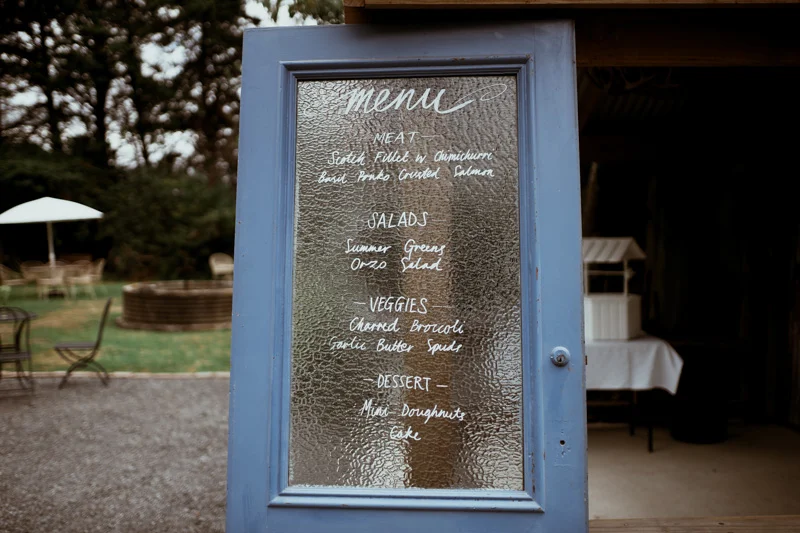 menu
MEAT
Scotch Fillet w Chimichurri
Basil Panko Crusted Salmon
SALADS
Summer Greens
Orzo Salad
VEGGIES
Charred Broccoli
Garlic Butter Spuds
DESSERT
Mini Doughnuts
Cake